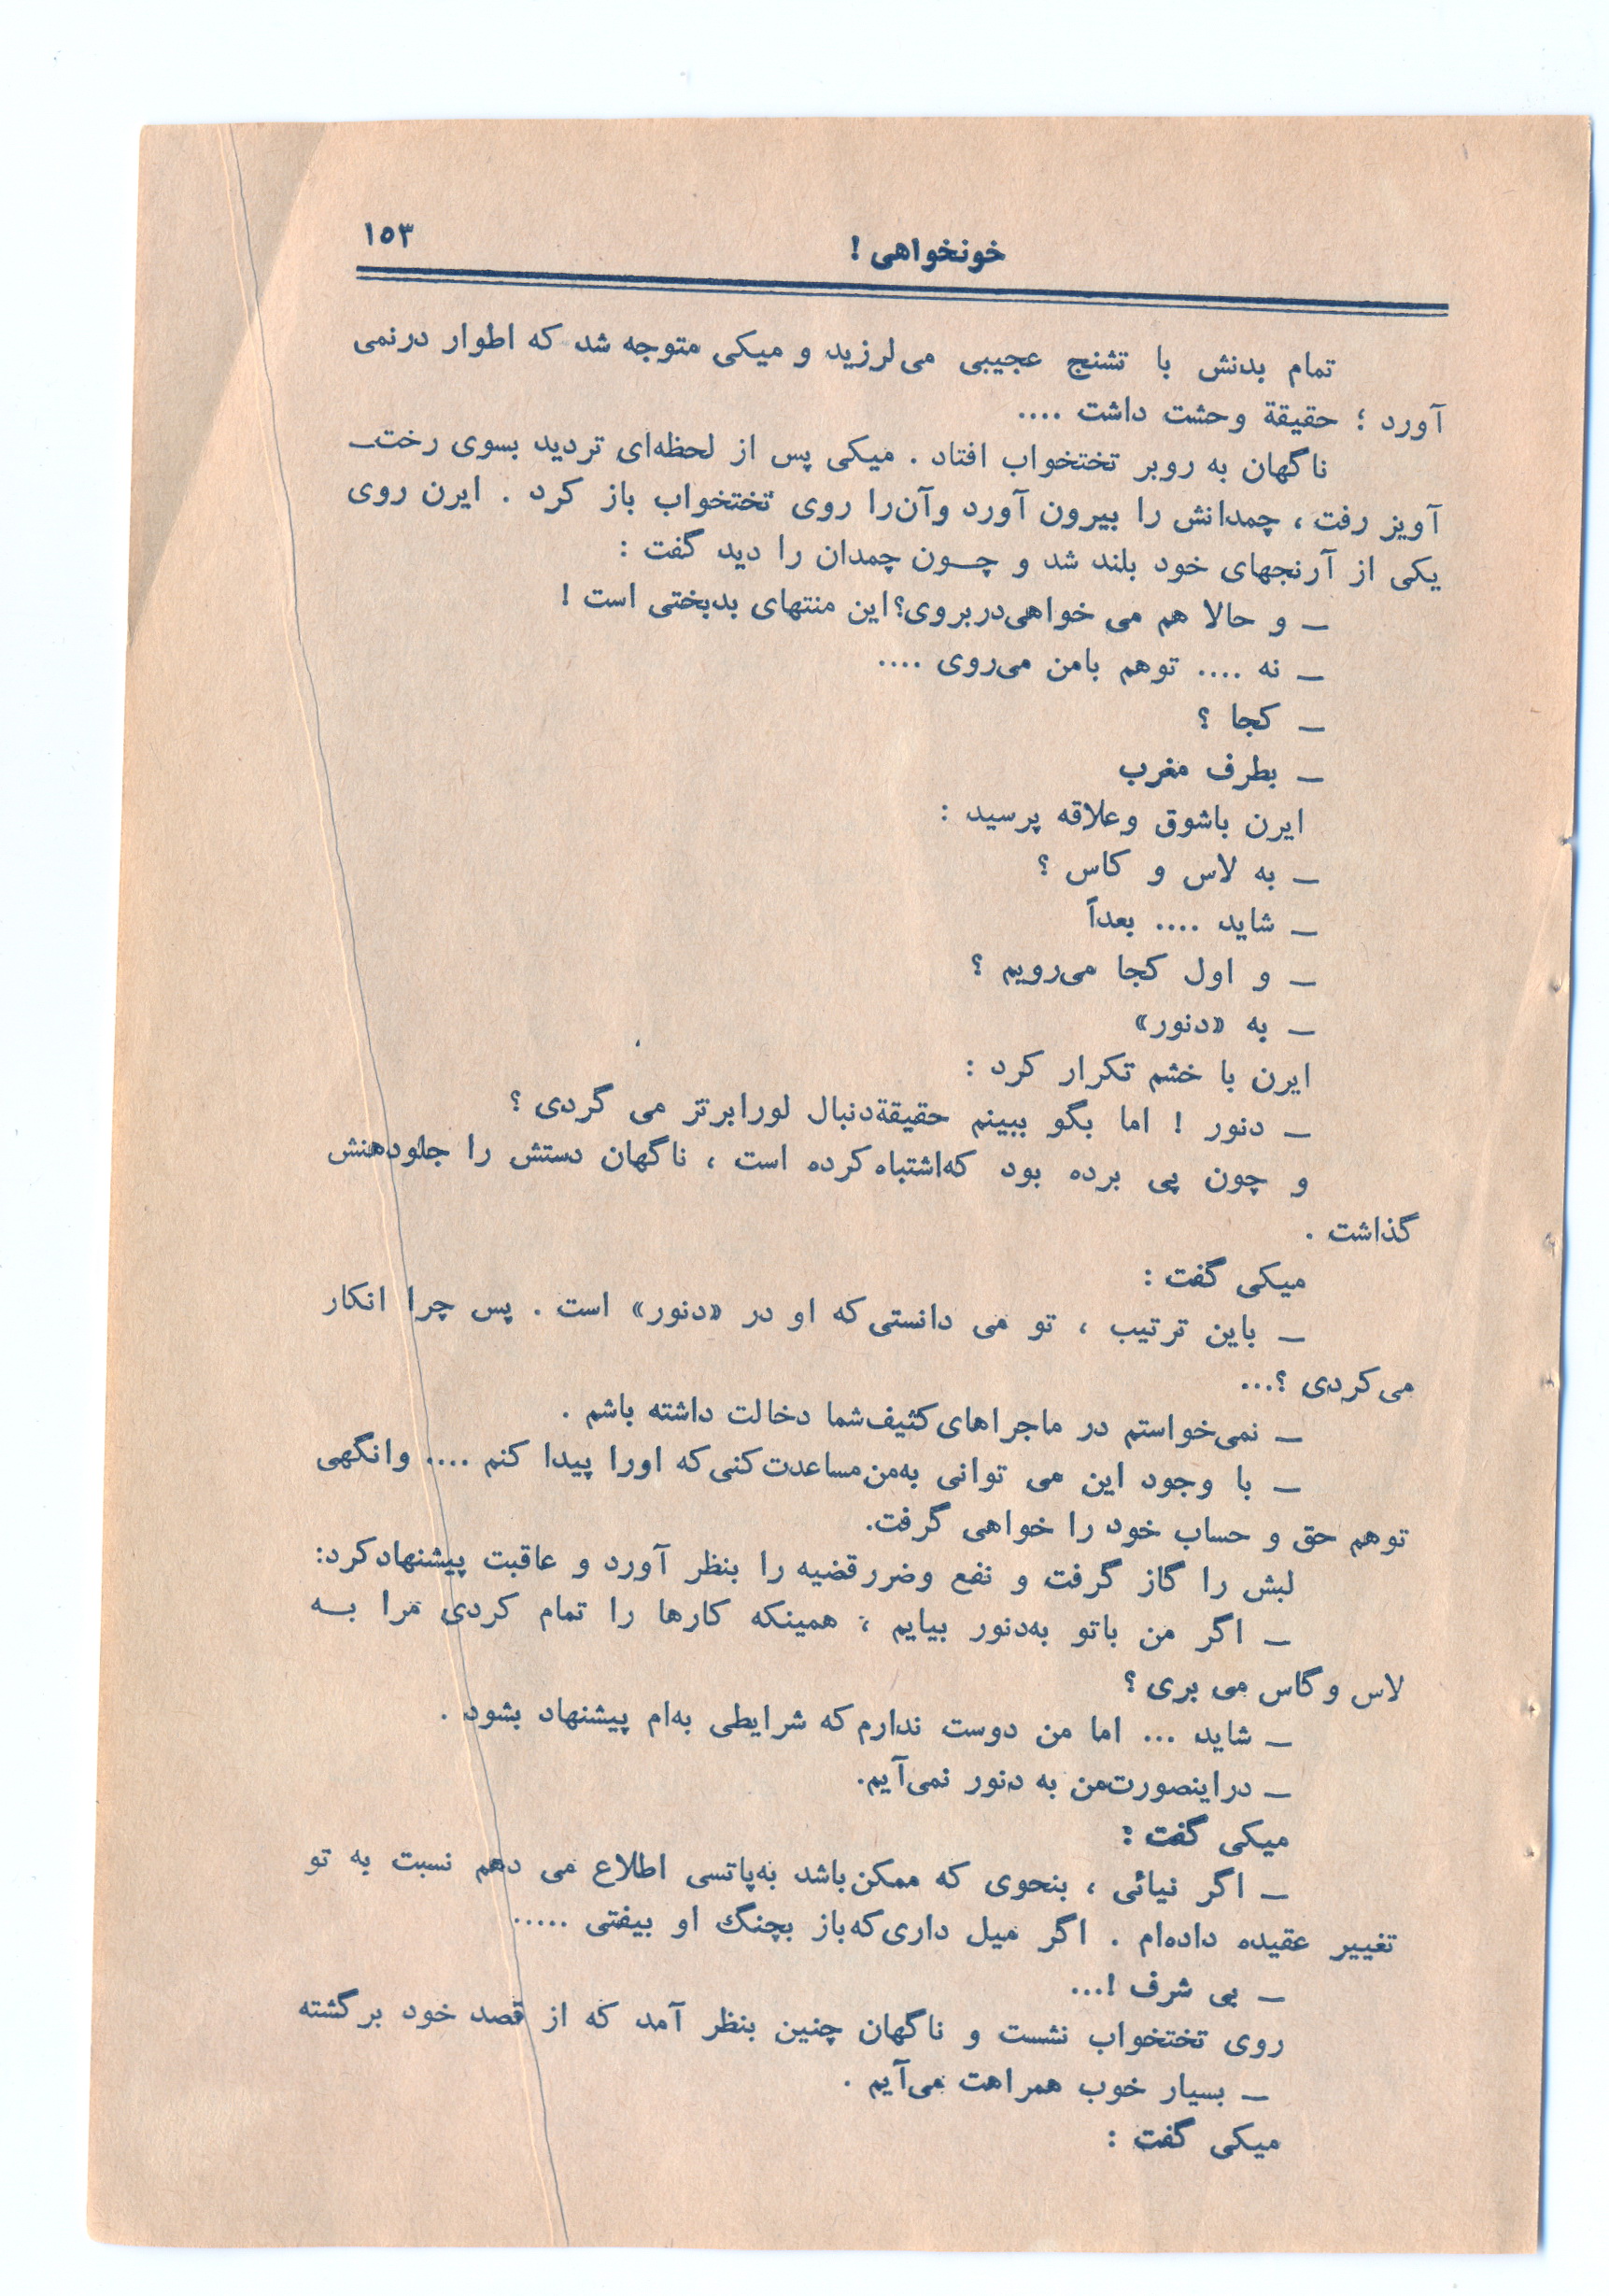 خونخواهی !
۱۵۳
تمام بدنش با تشنج عجیبی می‌لرزید و میکی متوجه شد که اطوار درنمی
آورد ؛ حقیقة وحشت داشت ....
ناگهان به روبر تختخواب افتاد . میکی پس از لحظه‌ای تردید بسوی رختـ
آویز رفت ، چمدانش را بیرون آورد وآن‌را روی تختخواب باز کرد . ایرن روی
یکی از آرنجهای خود بلند شد و چـون چمدان را دید گفت :
ـ و حالا هم می خواهی‌دربروی؟ این منتهای بدبختی است !
ـ نه .... توهم بامن می‌روی ....
ـ کجا ؟
ـ بطرف مغرب
ایرن باشوق وعلاقه پرسید :
ـ به لاس و کاس ؟
ـ شاید .... بعداً
ـ و اول کجا می‌رویم ؟
ـ به «دنور»
ایرن با خشم تکرار کرد :
ـ دنور ! اما بگو ببینم حقیقةدنبال لورابرتز می گردی ؟
و چون پی برده بود که‌اشتباه‌کرده است ، ناگهان دستش را جلودهنش
گذاشت .
میکی گفت :
ـ باین ترتیب ، تو می دانستی‌که او در «دنور» است . پس چرا انکار
می‌کردی ؟...
ـ نمی‌خواستم در ماجراهای‌کثیف‌شما دخالت داشته باشم .
ـ با وجود این می توانی به‌من‌مساعدت‌کنی‌که اورا پیدا کنم .... وانگهی
توهم حق و حساب خود را خواهی گرفت.
لبش را گاز گرفت و نفع وضررقضیه را بنظر آورد و عاقبت پیشنهادکرد:
ـ اگر من باتو به‌دنور بیایم ؛ همینکه کارها را تمام کردی مرا بـه
لاس وگاس می بری ؟
ـ شاید ... اما من دوست ندارم‌که شرایطی به‌ام پیشنهاد بشود .
ـ دراینصورت‌من به دنور نمی‌آیم.
میکی گفت :
ـ اگر نیائی ، بنحوی که ممکن‌باشد به‌پاتسی اطلاع می دهم نسبت به تو
تغییر عقیده داده‌ام . اگر میل داری‌که‌باز بچنگ او بیفتی .....
ـ بی شرف !...
روی تختخواب نشست و ناگهان چنین بنظر آمد که از قصد خود برگشته
ـ بسیار خوب همراهت می‌آیم .
میکی گفت :